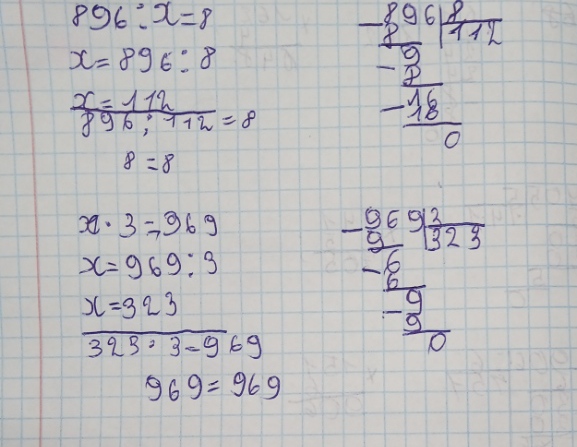 896:x=8
x=896:8
x=112
896:112=8
8=8
-896|8
8 112
-9
8
-16
18
0
x·3=969
x=969:3
x=323
323·3=969
969=969
-969|3
9 323
-6
6
-9
9
0